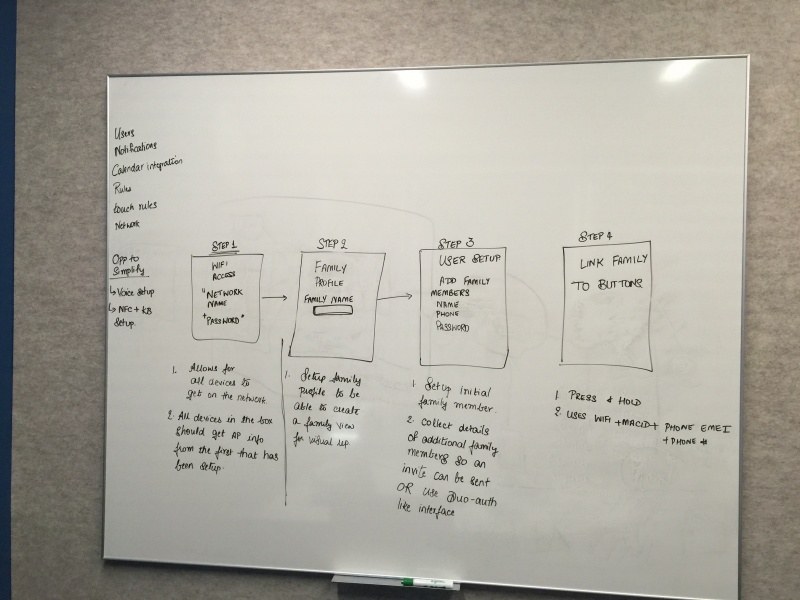 Users
Notifications
Calendar integration
Rules
touch rules
Network
Opp to
Simplify
↳ Voice setup
↳ NFC + KB
Setup.
STEP 1
WIFI
ACCESS
"NETWORK
NAME
+ PASSWORD"
1. Allows for
all devices to
get on the network.
2. All devices in the box
should get AP info
from the first that has
been setup.
STEP 2
FAMILY
PROFILE
FAMILY NAME
1. Setup family
profile to be
able to create
a family view
for visual rep
STEP 3
USER SETUP
ADD FAMILY
MEMBERS
NAME
PHONE
PASSWORD
1. Setup initial
family member.
2. Collect details
of additional family
members so an
invite can be sent
OR use Duo-auth
like interface
STEP 4
LINK FAMILY
TO BUTTONS
1. PRESS & HOLD
2. USES WIFI + MACID + PHONE EMEI
+ PHONE #